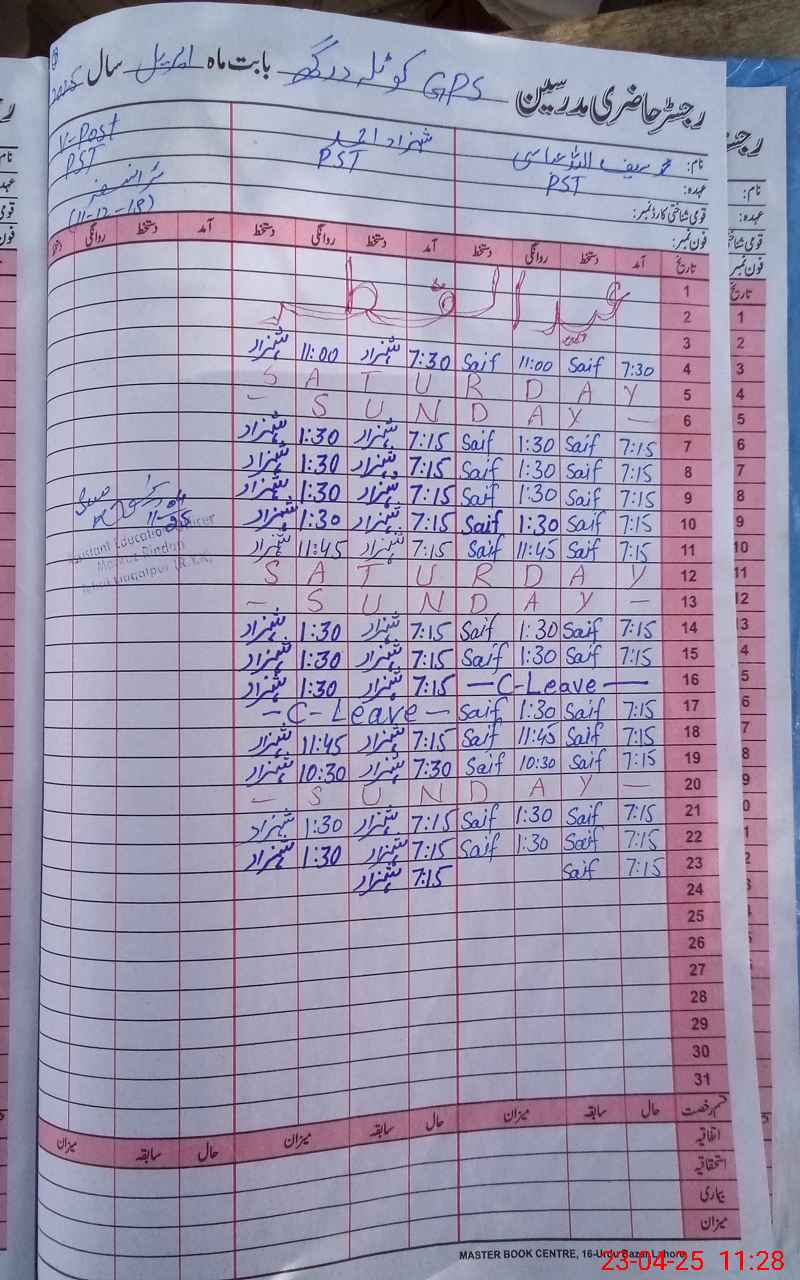 رجسٹر حاضری مدرسین GPS کوٹلہ درگھ بابت ماہ اپریل سال 2025
نام: محمد سیف اللہ عباسی شہزاد احمد V-Post
عہدہ: PST PST PST
قومی شناختی کارڈ نمبر: (11-12-18)
فون نمبر:
تاریخ آمد دستخط روانگی دستخط آمد دستخط روانگی دستخط آمد دستخط روانگی
1
2 عید الفطر
3
4 7:30 Saif 11:00 Saif 7:30 شہزاد 11:00 شہزاد
5 SATURDAY
6 - SUNDAY -
7 7:15 Saif 1:30 Saif 7:15 شہزاد 1:30 شہزاد
8 7:15 Saif 1:30 Saif 7:15 شہزاد 1:30 شہزاد
9 7:15 Saif 1:30 Saif 7:15 شہزاد 1:30 شہزاد
10 7:15 Saif 1:30 Saif 7:15 شہزاد 1:30 شہزاد
11 7:15 Saif 11:45 Saif 7:15 شہزاد 11:45 شہزاد
Assistant Education Officer
12 SATURDAY
13 - SUNDAY -
14 7:15 Saif 1:30 Saif 7:15 شہزاد 1:30 شہزاد
15 7:15 Saif 1:30 Saif 7:15 شہزاد 1:30 شہزاد
16 -C-Leave- 7:15 شہزاد 1:30 شہزاد
17 7:15 Saif 1:30 Saif -C-Leave-
18 7:15 Saif 11:45 Saif 7:15 شہزاد 11:45 شہزاد
19 7:15 Saif 10:30 Saif 7:30 شہزاد 10:30 شہزاد
20 - SUNDAY -
21 7:15 Saif 1:30 Saif 7:15 شہزاد 1:30 شہزاد
22 7:15 Saif 1:30 Saif 7:15 شہزاد 1:30 شہزاد
23 7:15 Saif 7:15 شہزاد
24
25
26
27
28
29
30
31
قسم رخصت حال سابقہ میزان حال سابقہ میزان حال سابقہ میزان
اتفاقیہ
استحقاقیہ
بیماری
میزان
MASTER BOOK CENTRE, 16-Urdu Bazar Lahore
23-04-25 11:28